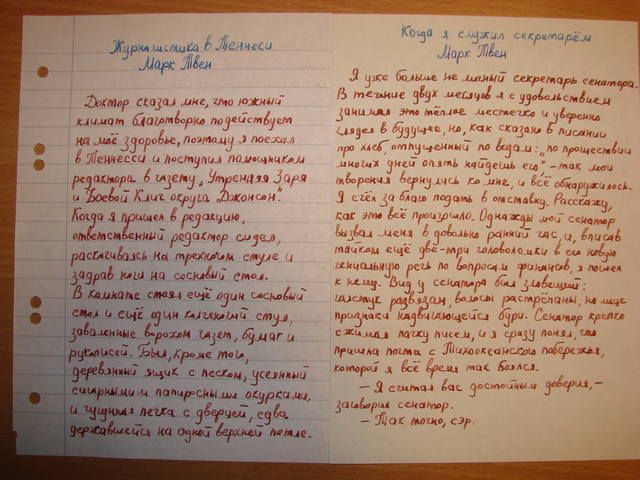 Журналистика в Теннеси
Марк Твен
Доктор сказал мне, что южный
климат благотворно подействует
на моё здоровье, поэтому я поехал
в Теннесси и поступил помощником
редактора в газету „Утренняя Заря
и Боевой Клич округа Джонсон".
Когда я пришел в редакцию,
ответственный редактор сидел,
раскачиваясь на трехногом стуле и
задрав ноги на сосновый стол.
В комнате стоял ещё один сосновый
стол и ещё один колченогий стул,
заваленные ворохом газет, бумаг и
рукописей. Был, кроме того,
деревянный ящик с песком, усеянный
сигарными и папиросными окурками,
и чугунная печка с дверцей, едва
державшейся на одной верхней петле.
Когда я служил секретарём
Марк Твен
Я уже больше не личный секретарь сенатора.
В течение двух месяцев я с удовольствием
занимал это тёплое местечко и уверенно
глядел в будущее, но, как сказано в писании
про хлеб, отпущенный по водам: „по прошествии
многих дней опять найдешь его", – так мои
творения вернулись ко мне, и всё обнаружилось.
Я счёл за благо подать в отставку. Расскажу,
как это всё произошло. Однажды мой сенатор
вызвал меня в довольно ранний час, и, вписав
тайком ещё две-три головоломки в его новую
гениальную речь по вопросам финансов, я пошел
к нему. Вид у сенатора был зловещий:
галстук развязан, волосы растрёпаны, на лице
признаки надвигающейся бури. Сенатор крепко
сжимал пачку писем, и я сразу понял, что
пришла почта с Тихоокеанского побережья,
которой я всё время так боялся.
– Я считал вас достойным доверия, –
заговорил сенатор.
– Так точно, сэр.